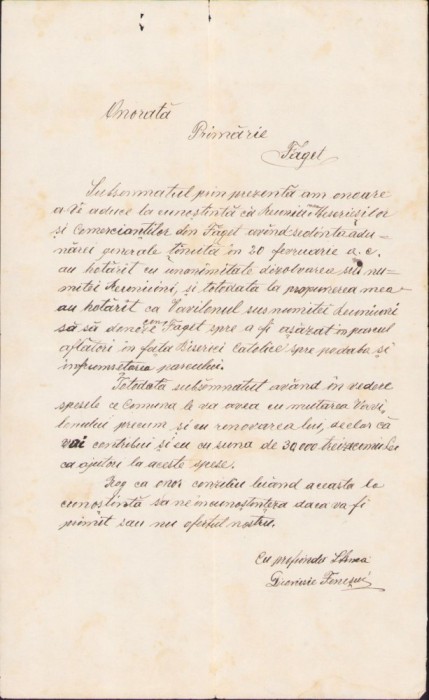 Onorată
Primărie
Făget
Subsemnatul prin prezentă am onoare
a Vi aduce la cunoștință că Reuniunea Meseriașilor
și Comerciantilor din Făget având sedința adu-
nărei generale ținuta in 20 fevruarie a.c.
au hotărit cu unonimitate dizolvarea sus nu-
mitei Reuniuni, și totodata la propunerea mea
au hotărit ca Pavilonul sus numitei Reuniuni
să să doneze com Făget spre a fi așăzat in parcul
aflători in fața Bisercei Catolice spre podoaba și
infrumsetarea parcului.
Totodotă subsemnatul având in vedere
spesele ce Comuna le va avea cu mutarea Pavi-
lonului precum și cu renovarea lui, declor că
voi contribui și eu cu suma de 30,000 treizecimii lei
ca ajutor la aceste spese.
Rog ca onor consiliu luand aceasta la
cunostintă sa ne incunostinteza daca va fi
primit sau nu ofertul nostru.
Cu profunda Stima